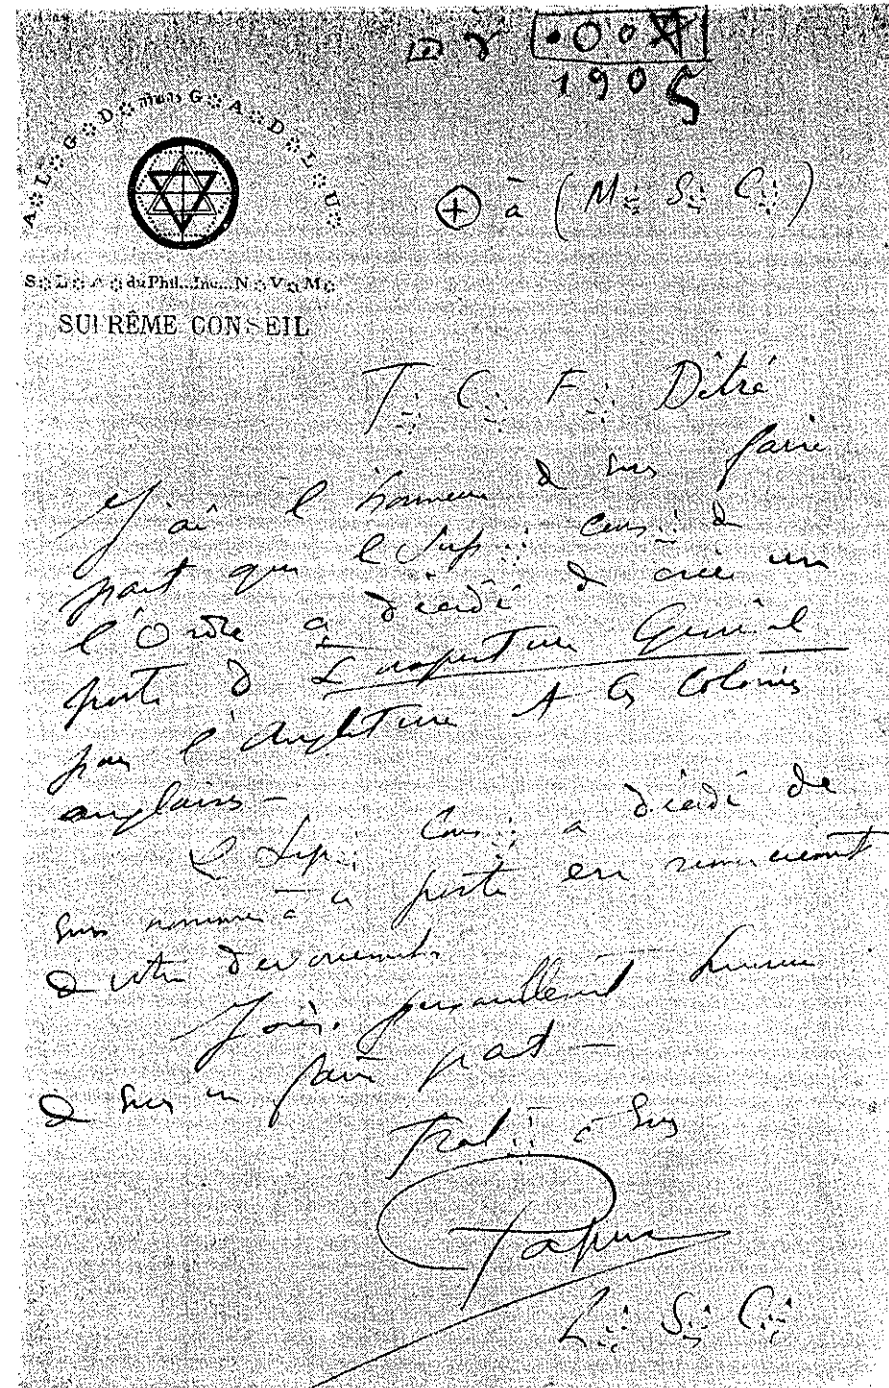 1905
A∴ L∴ G∴ D∴ G∴ A∴ D∴ L∴ U∴
à (M∴ S∴ C∴)
S∴ L∴ A∴ du Phil... Inc... N∴ V∴ M∴
SUPRÊME CONSEIL
T∴ C∴ F∴ Détré
J'ai l'honneur de vous faire
part que le Sup∴ Cons∴ de
l'Ordre a décidé de créer un
poste d'Inspecteur Général
pour l'Angleterre et les Colonies
anglaises –
Le Sup∴ Cons∴ a décidé de
vous nommer à ce poste en remerciement
de votre dévouement.
personnellement heureux
de vous en faire part –
Frat∴ à vous
Papus
S∴ C∴